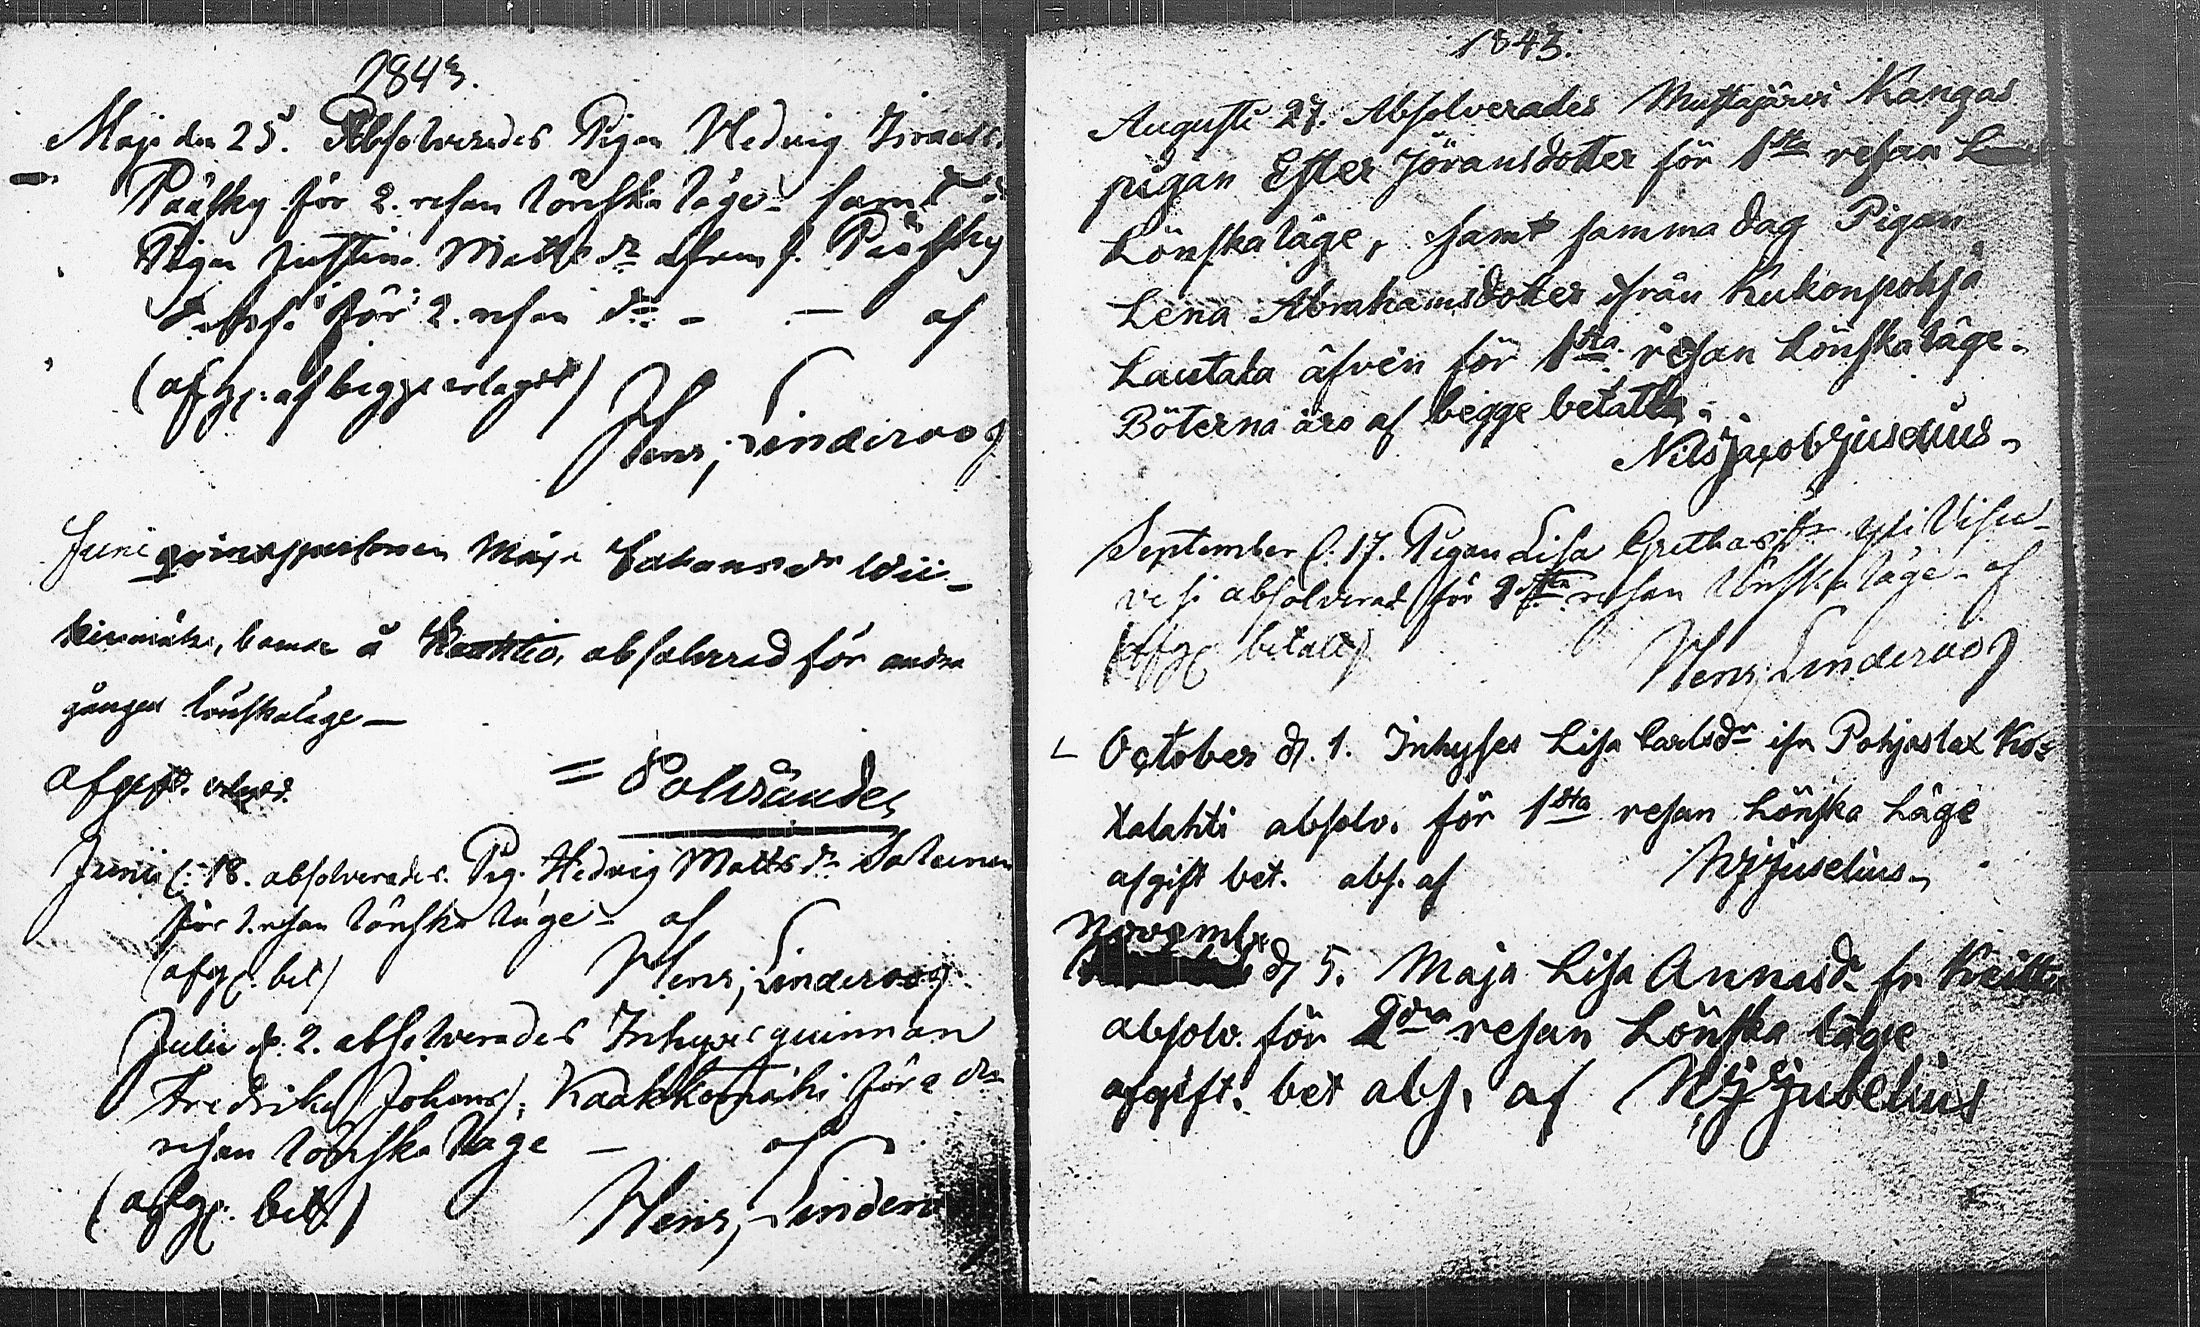 1843.
Maji den 25. Absolverades Pigan Hedvig Israels
Pääsky för 2. resan lönska läge – samt
Pigan Justina Mattsdr Pääsky
för 2. resan do – – af
(afg. af begge erlagdt)
Henr; Linderoos
Juni qvinspersonen Maja Johansdr Wii-
kinmäki, boende å absolverad för andra
gången lönskaläge –
Afgift. erlagd.
= Polviander
Junii d. 18. absolverades Pig. Hedvig Mattsdr
för 1. resan lönska läge – af
(afg. bet) Henr; Linderoos
Julii d. 2. absolverades Inhyses quinnan
Fredrika Johansd; Kaakkomäki för 2 dra
resan lönska läge – af
(afg. bet.) Henr; Linderoos
1843.
Augusti 27. Absolverades Mustajärvi Kangas
pigan Ester Jöransdotter för 1sta resan
Lönskaläge, samt samma dag Pigan
Lena Abrahamsdotter ifrån Kukonpohja
Lautala äfven för 1sta resan Lönskaläge.
Böterna äro af begge betatta.
Nils Jacob Juselius
September d. 17. Pigan Lisa Grethasdr Yli Visu-
vesi absolverad för resan lönska läge – af
(afg. betalt) Henr; Linderoos
October d. 1. Inhyses Lisa Carlsdr ifr Pohjaslax Kos
kalahti absolv. för 1sta resan Lönska Läge
afgift bet. abs. af NJJuselius
Novembr
d 5. Maja Lisa Annasdr fr Kreitti
absolv. för 2dra resan Lönska läge
afgift. bet abs. af NJJuselius